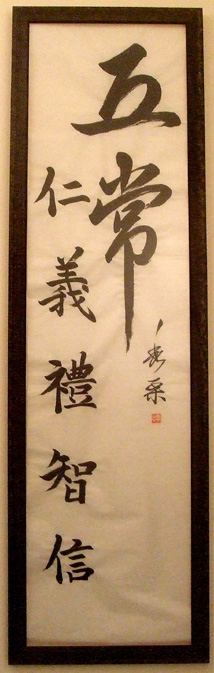 五常
仁義禮智信